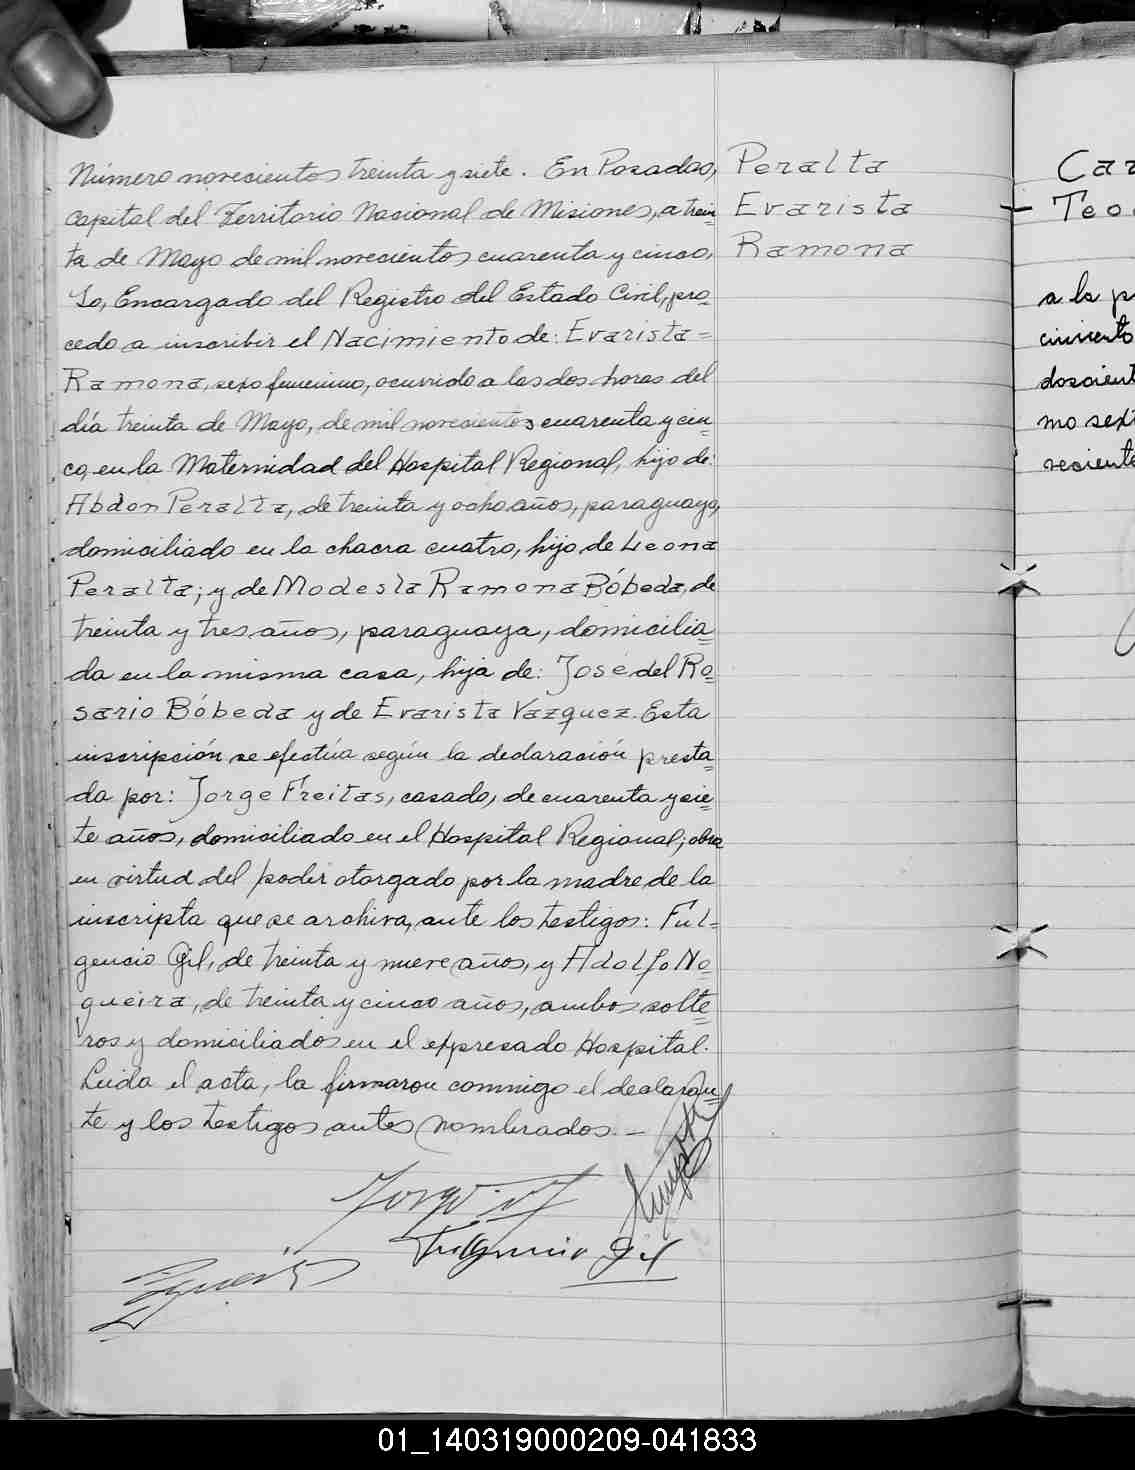 Número novecientos treinta y siete. En Posadas,
capital del Territorio Nacional de Misiones, a trein-
ta de Mayo de mil novecientos cuarenta y cinco,
Yo, Encargado del Registro del Estado Civil, pro-
cedo a inscribir el Nacimiento de: Evarista=
Ramona, sexo femenino, ocurrido a las dos horas del
día treinta de Mayo, de mil novecientos cuarenta y cin-
co, en la Maternidad del Hospital Regional, hijo de:
Abdon Peralta, de treinta y ocho años, paraguayo,
domiciliado en la chacra cuatro, hijo de Leona
Peralta; y de Modesta Ramona Bóbeda, de
treinta y tres años, paraguaya, domicilia=
da en la misma casa, hija de: José del Ro=
sario Bóbeda y de Evarista Vazquez. Esta
inscripción se efectúa según la declaración presta=
da por: Jorge Freitas, casado, de cuarenta y sie=
te años, domiciliado en el Hospital Regional; obra
en virtud del poder otorgado por la madre de la
inscripta que se archiva, ante los testigos: Ful=
gencio Gil, de treinta y nueve años, y Adolfo No=
gueira, de treinta y cinco años, ambos solte=
ros y domiciliados en el expresado Hospital.
Leida el acta, la firmaron conmigo el declaran=
te y los testigos antes nombrados.—
Fulgencio Gil
Peralta
Evarista
Ramona
Car
Teo
a la p
cimiento
doscient
mo sext
veciento
01_140319000209-041833